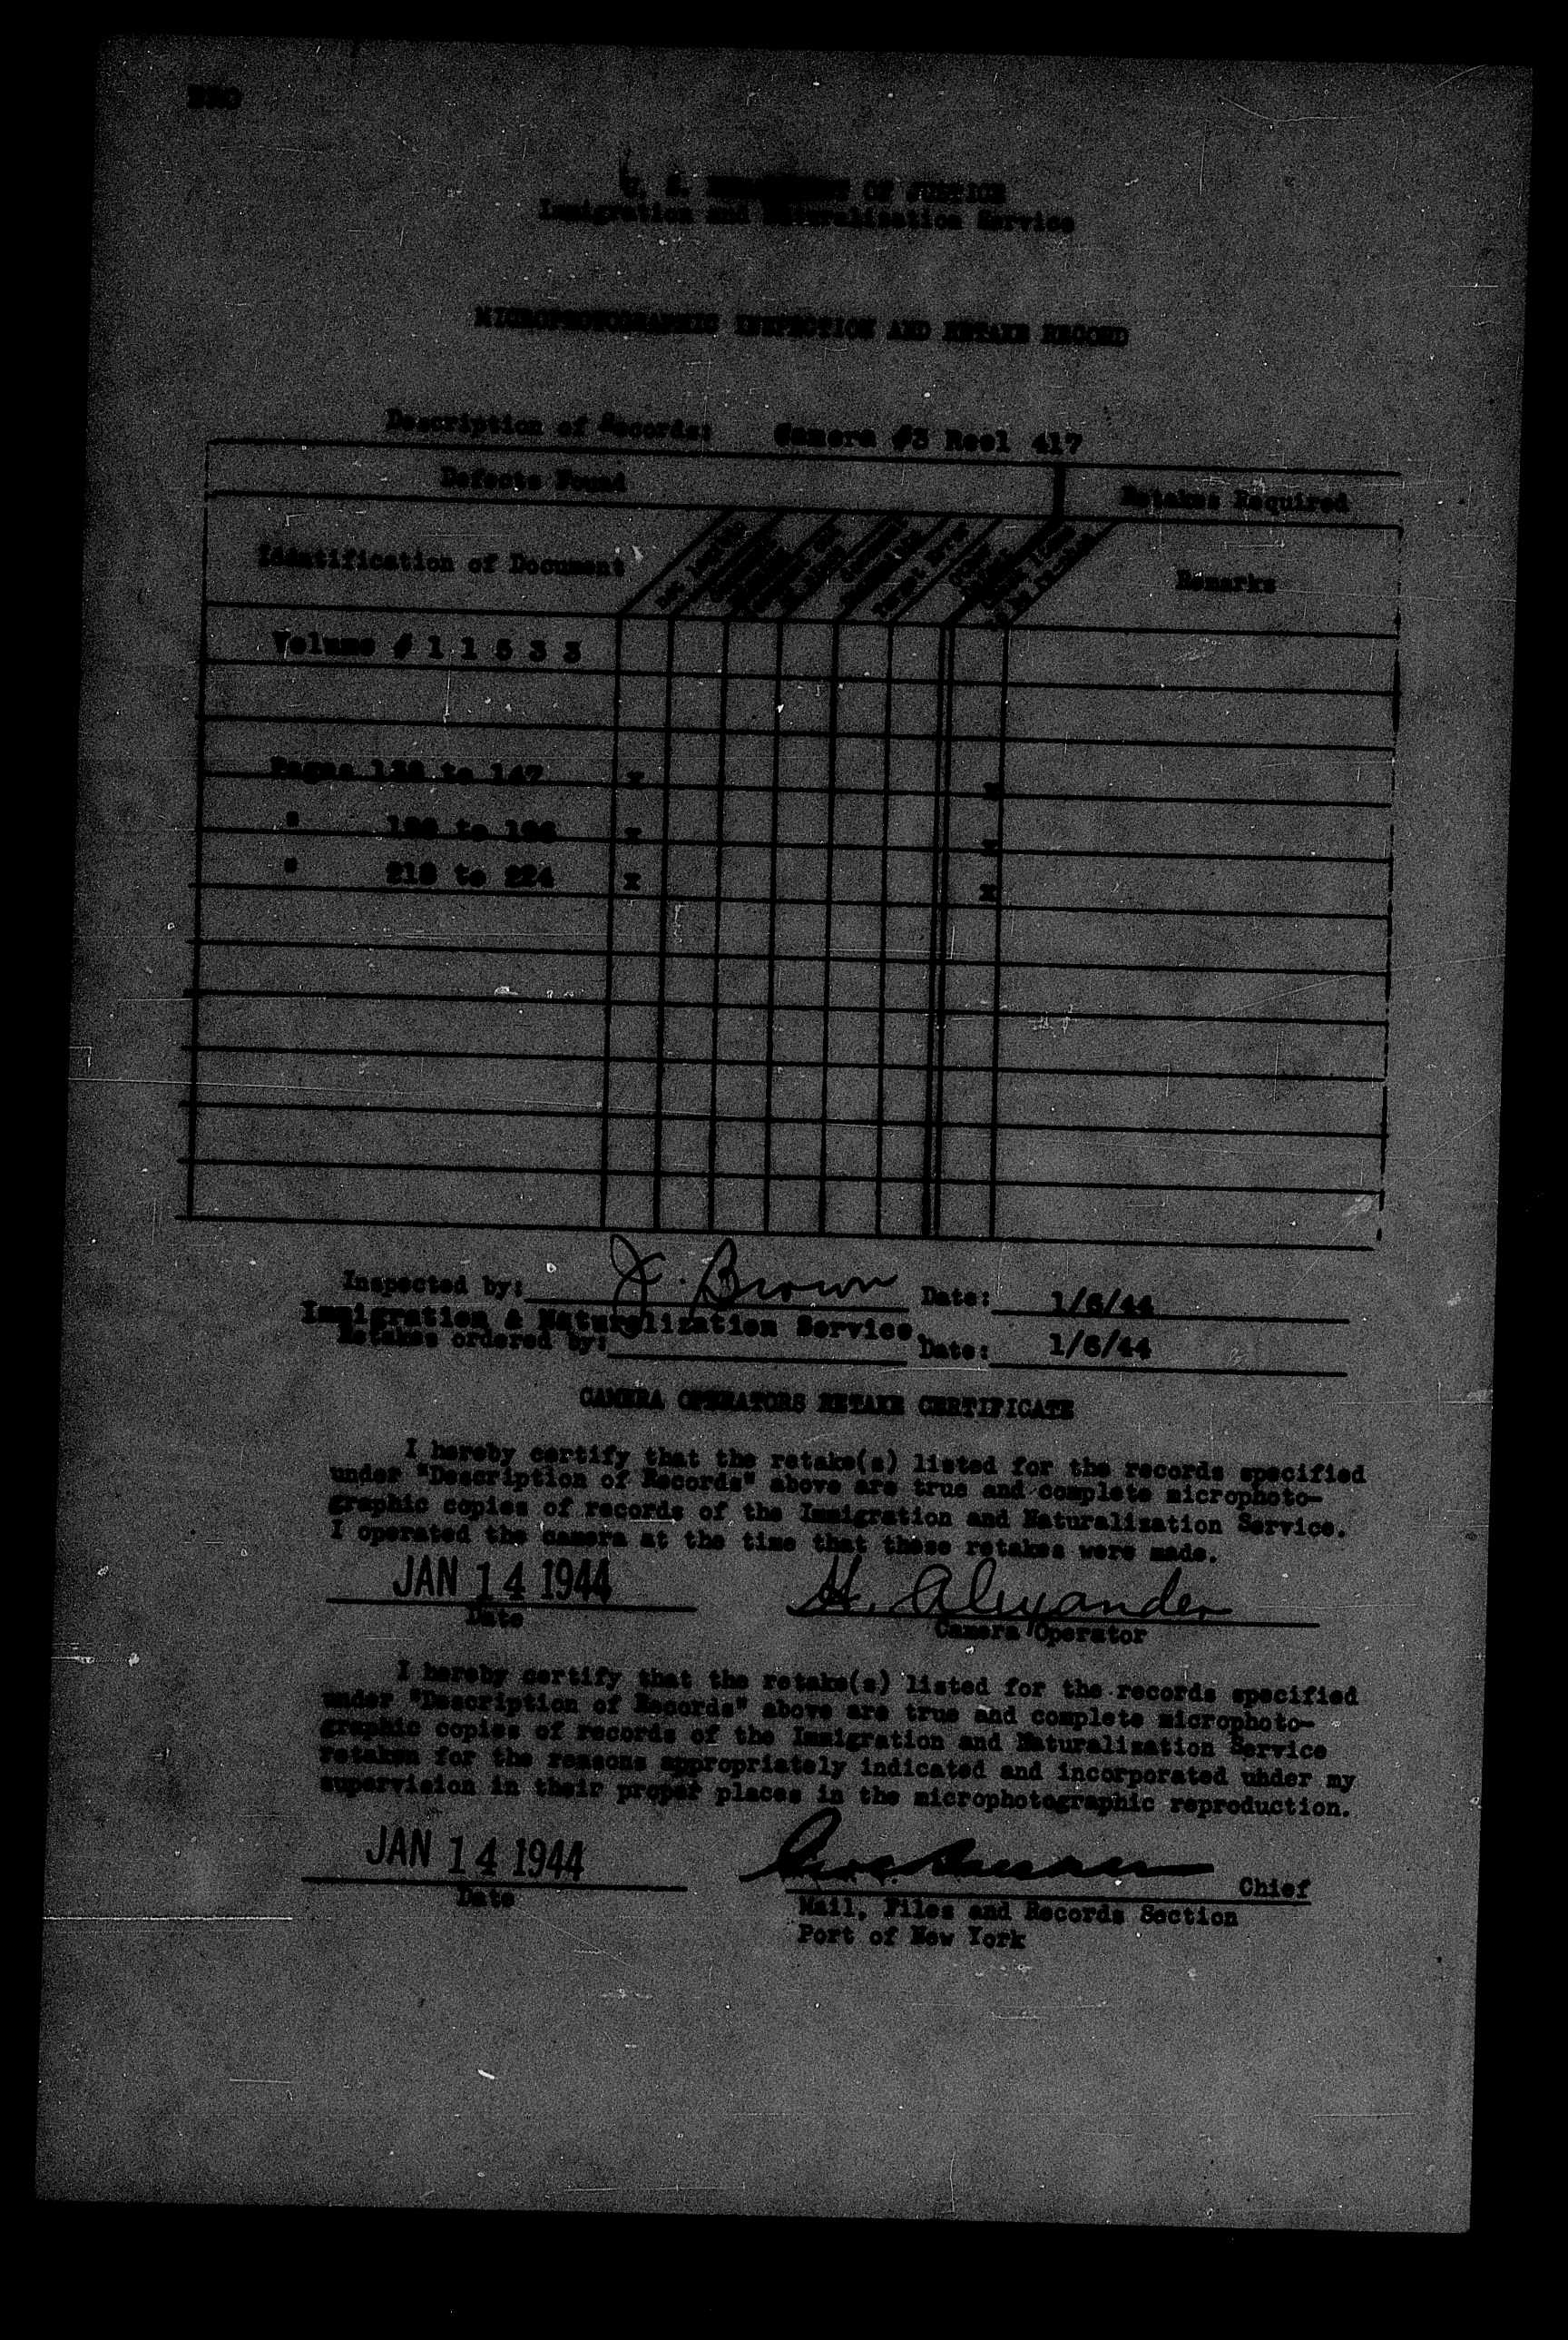 U. S. DEPARTMENT OF JUSTICE
Immigration and Naturalization Service
MICROPHOTOGRAPHIC INSPECTION AND RETAKE RECORD
Description of Records: Camera #3 Reel 417
Defects Found
Retakes Required
Identification of Document
Remarks
Volume # 1 1 5 3 3
Pages to 147 x x
" to x x
" 218 to 224 x x
Inspected by: J. Brown Date: 1/6/44
Immigration & Naturalization Service.
Retakes ordered by: Date: 1/6/44
CAMERA OPERATORS RETAKE CERTIFICATE
I hereby certify that the retake(s) listed for the records specified
under "Description of Records" above are true and complete microphoto-
graphic copies of records of the Immigration and Naturalization Service.
I operated the camera at the time that these retakes were made.
JAN 14 1944 H. Alexander
Date Camera Operator
I hereby certify that the retake(s) listed for the records specified
under "Description of Records" above are true and complete microphoto-
graphic copies of records of the Immigration and Naturalization Service
retaken for the reasons appropriately indicated and incorporated under my
supervision in their proper places in the microphotographic reproduction.
JAN 14 1944
Chief
Date
Mail, Files and Records Section
Port of New York